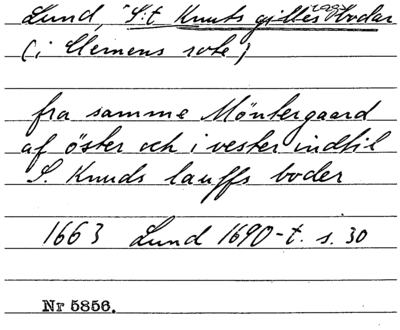 Lund, S:t Knuts gilles bodar
(i Clemens rote)
fra samme Möntergaard
af öster och i vester indtil
S. Knuds lauffs boder
1663 Lund 1690-t. s. 30
Nr 5856.